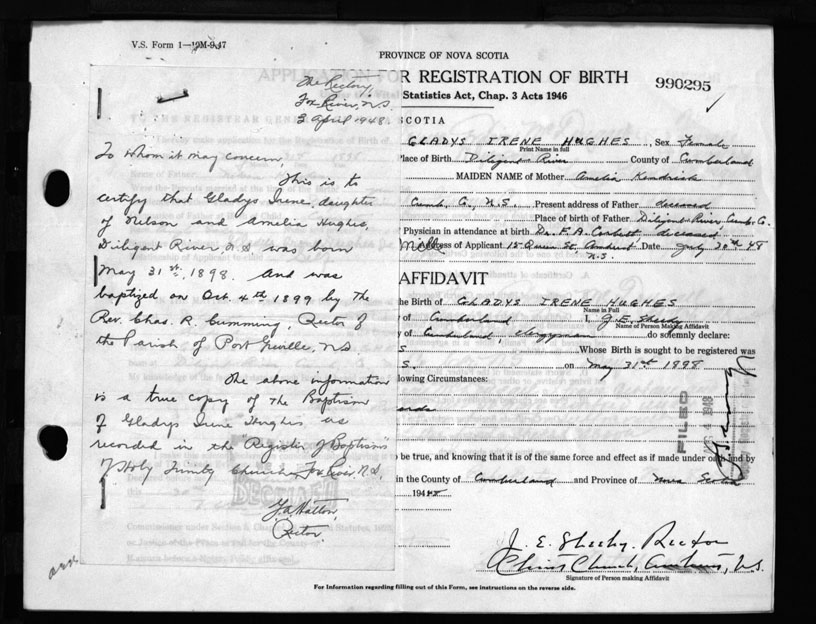 V.S. Form 1—10M-9-47
PROVINCE OF NOVA SCOTIA
FOR REGISTRATION OF BIRTH
990295
Statistics Act, Chap. 3 Acts 1946
The Rectory,
Fox River, N.S.
3 April 1948
To whom it may concern,
This is to
certify that Gladys Irene, daughter
of Nelson and Amelia Hughes,
Diligent River, N.S. was born
May 31st, 1898. And was
baptized on Oct. 4th 1899 by the
Rev. Chas. R. Cumming, Rector of
the Parish of Port Greville, N.S.
The above information
is a true copy of the Baptism
of Gladys Irene Hughes as
recorded in the Register of Baptisms
of Holy Trinity Church, Fox River, N.S.
Rector.
SCOTIA
GLADYS IRENE HUGHES, Sex Female
Print Name in full
Place of Birth Diligent River County of Cumberland
MAIDEN NAME of Mother Amelia Kendrick
Cumb. Co., N.S. Present address of Father deceased
Place of birth of Father Diligent River, Cumb. Co.
Physician in attendance at birth Dr. F.A. Corbett, deceased
Address of Applicant 15 Queen St. Amherst Date July 20th 48
N.S.
AFFIDAVIT
the Birth of GLADYS IRENE HUGHES
Name in Full
of Cumberland I, J.E. Sheehy
Name of Person Making Affidavit
y of Cumberland, clergyman do solemnly declare:
S Whose Birth is sought to be registered was
S. on May 31st 1898
lowing Circumstances:
ords
FILED
to be true, and knowing that it is of the same force and effect as if made under oath and by
in the County of Cumberland and Province of Nova Scotia
1948
J. E. Sheehy. Rector
Christ Church, Amherst, N.S.
Signature of Person making Affidavit
For Information regarding filling out of this Form, see instructions on the reverse side.